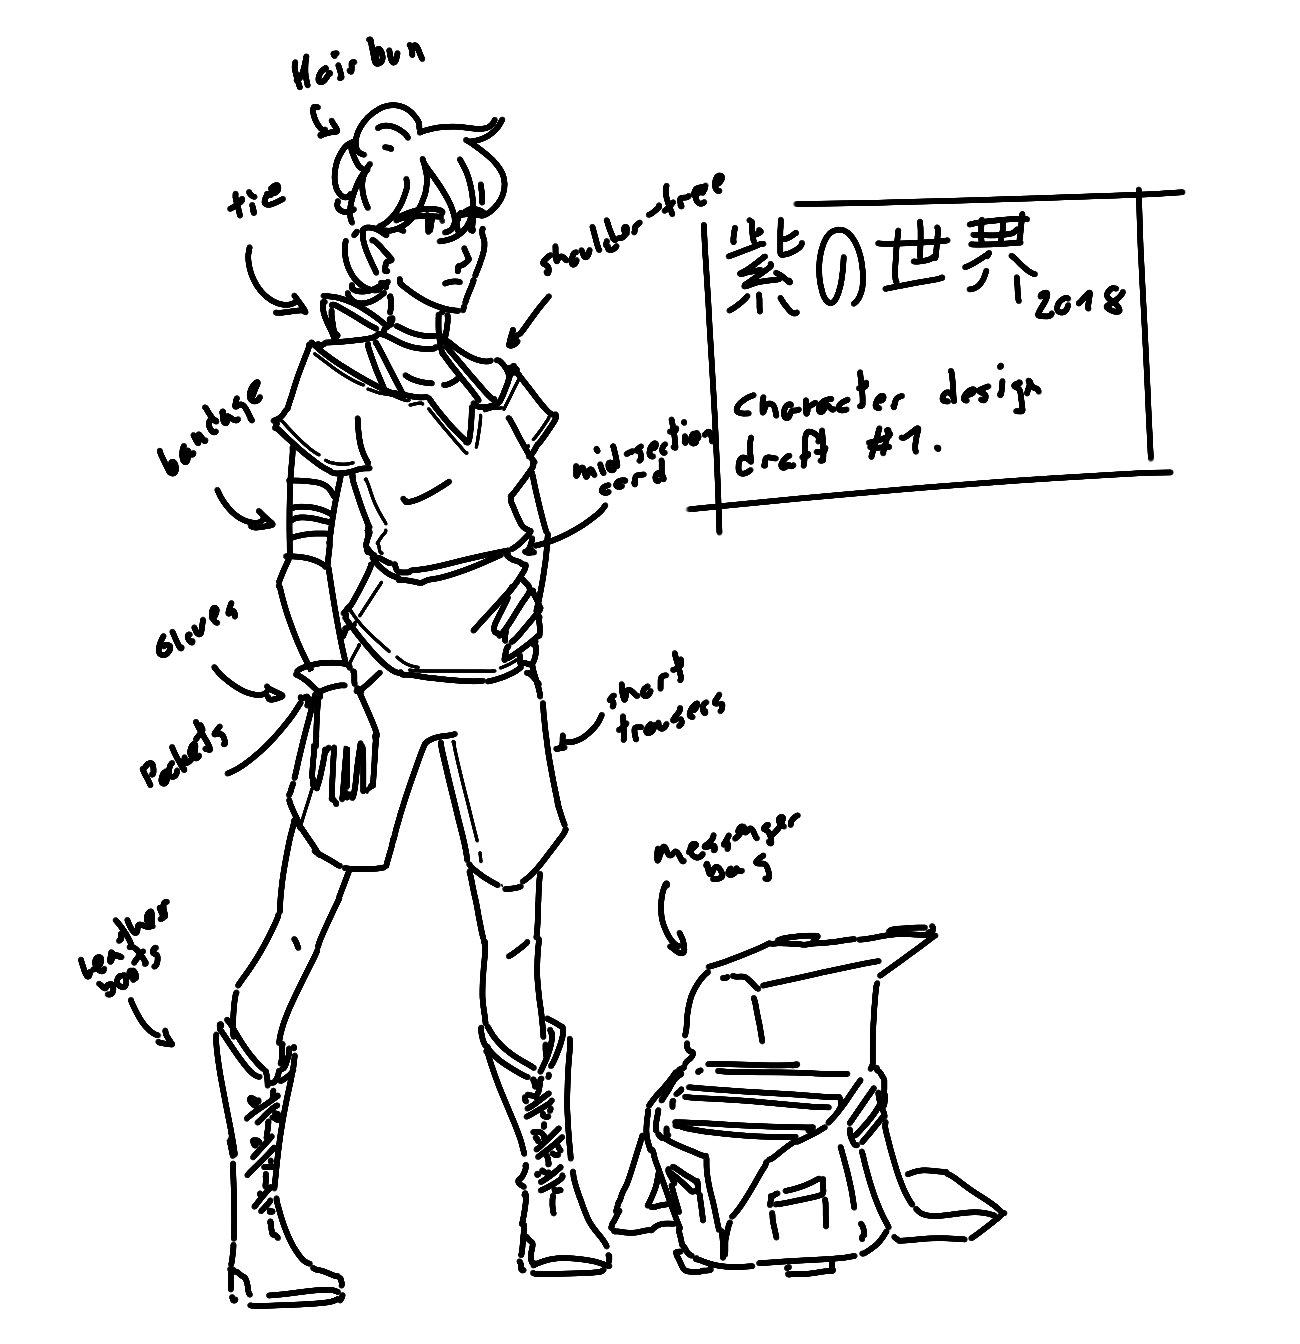 Hair bun
tie
shoulder-tree
紫の世界
2018
character design
draft #1.
bandage
mid-section
cerd
Gloves
Pockets
short
trousers
messenger
bag
Leather
boots